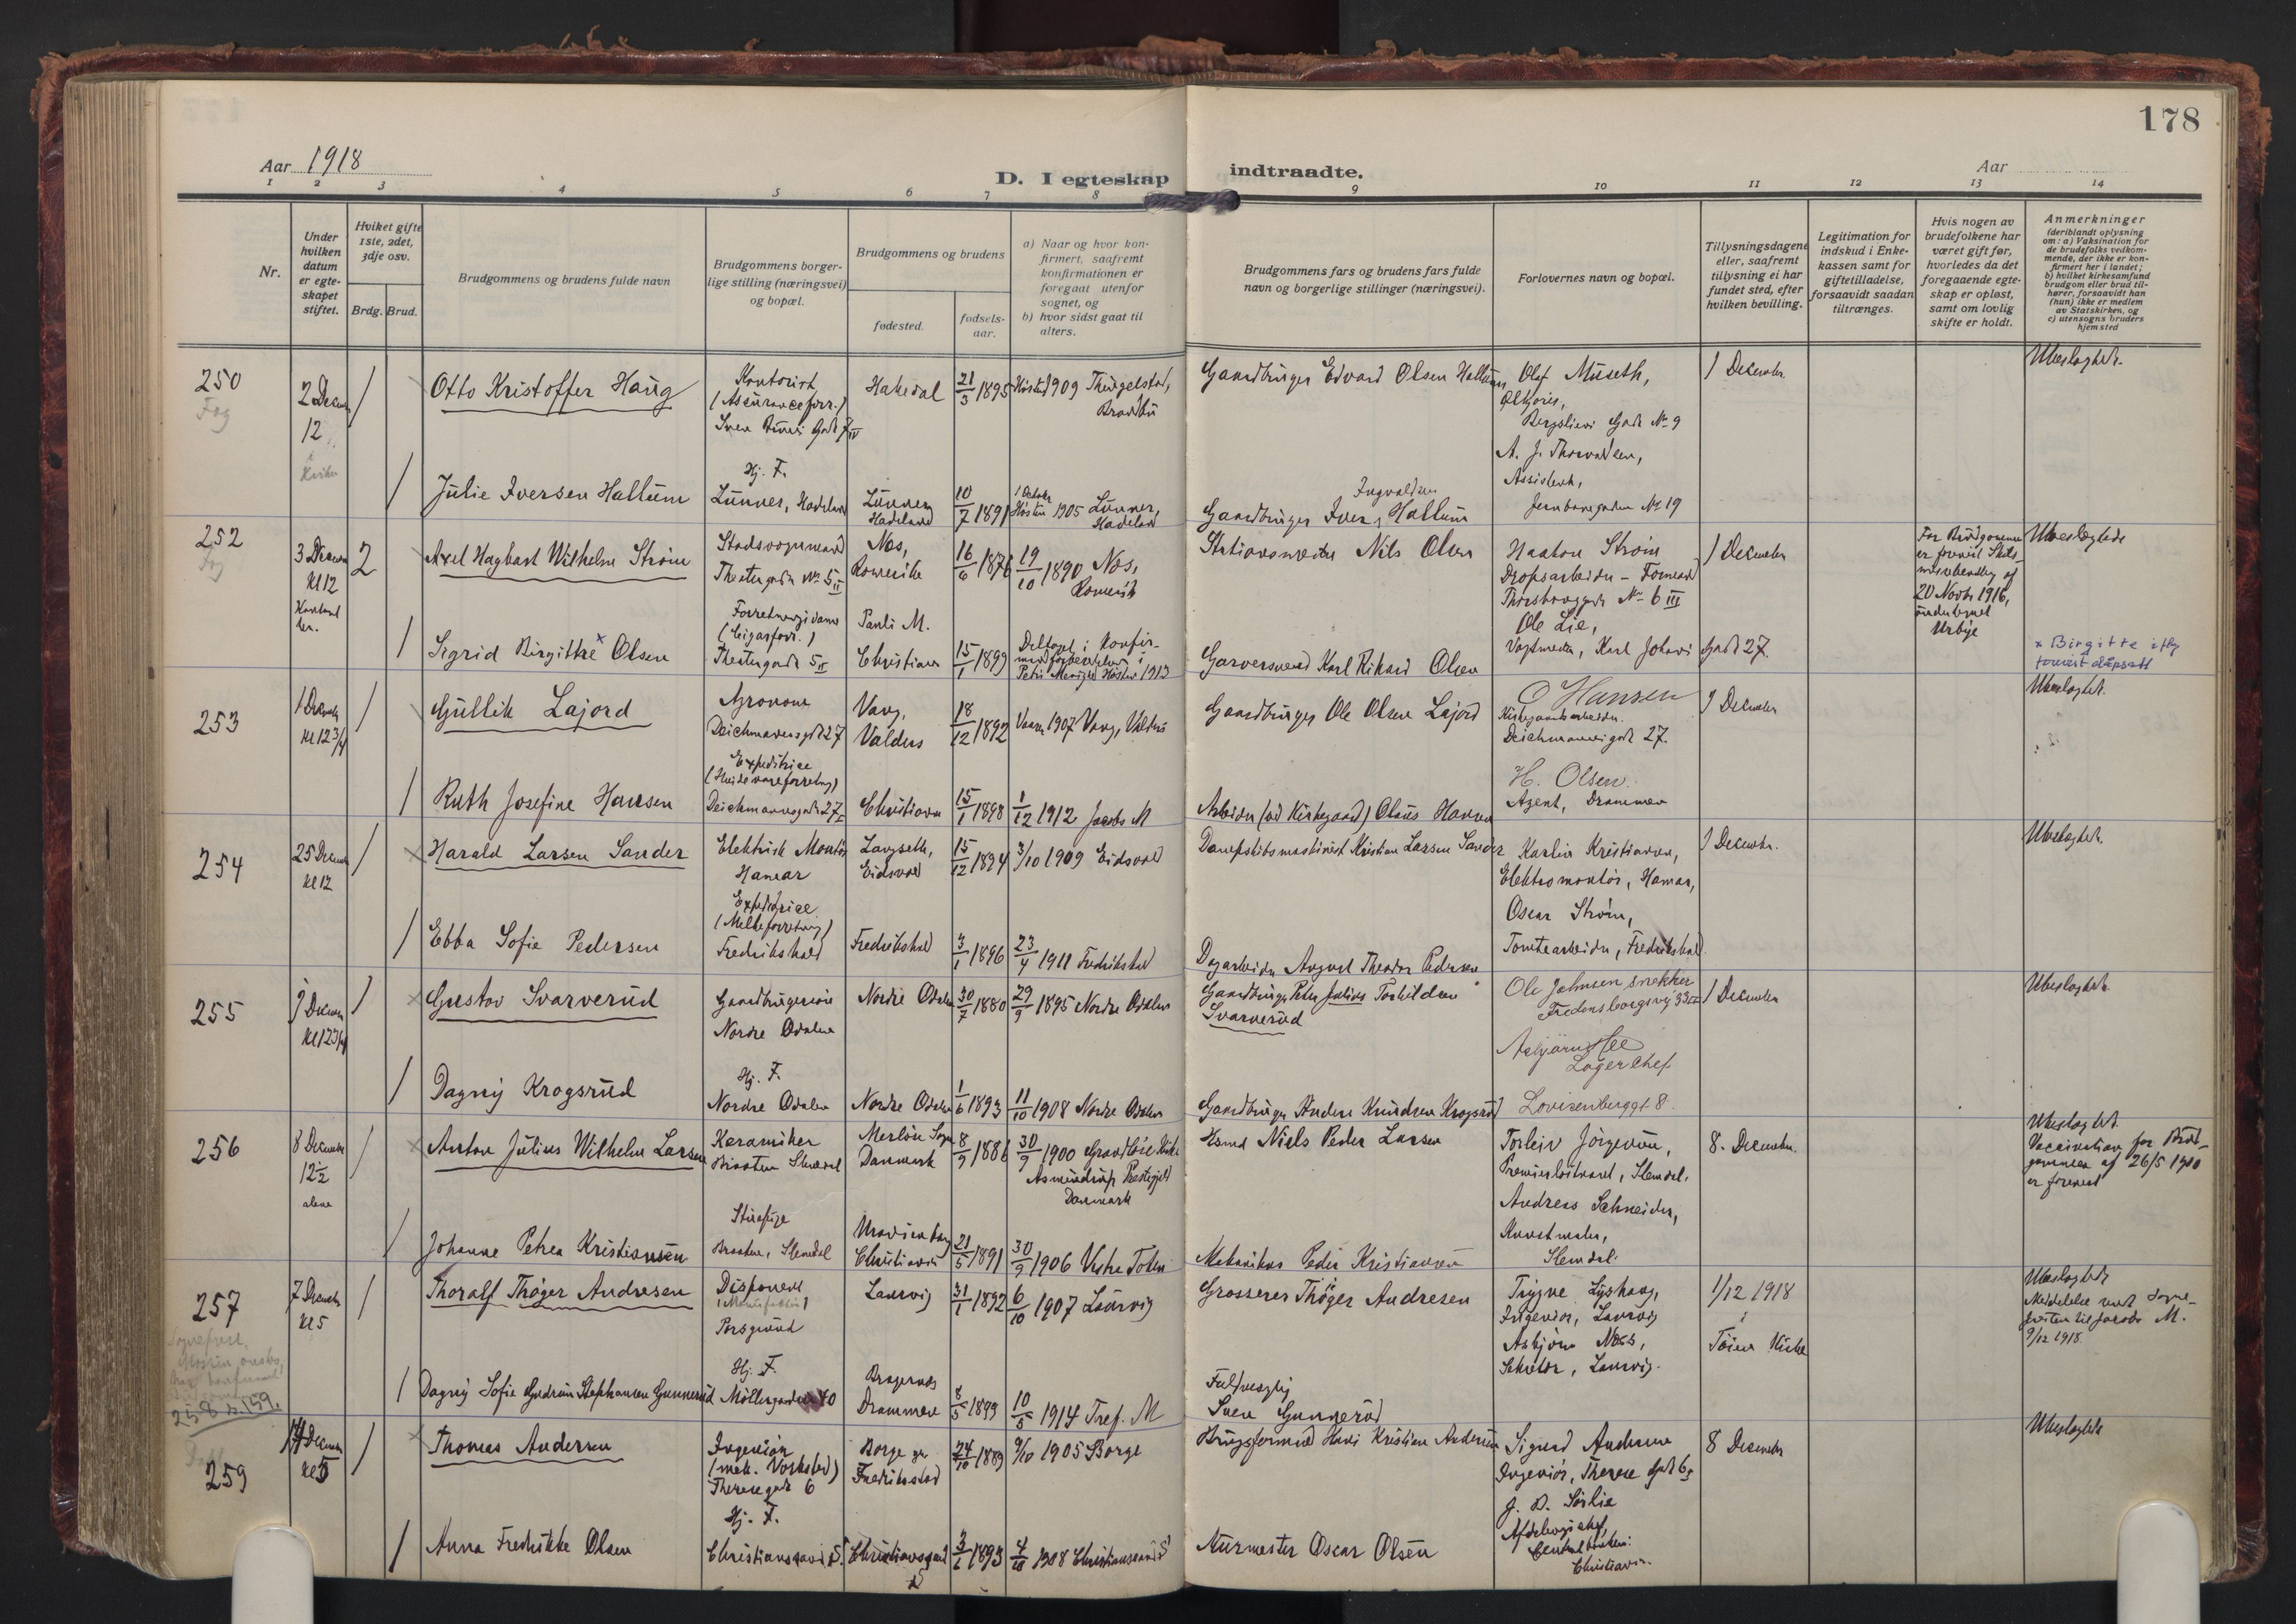 178
Aar 1918
D. I egteskap indtraadte.
Aar
1 2 3 4 5 6 7 8 9 10 11 12 13 14
Nr.
Under
hvilken
datum
er egte-
skapet
stiftet.
Hvilket gifte
1ste, 2det,
3dje osv.
Brdg. Brud.
Brudgommens og brudens fulde navn
Brudgommens borger-
lige stilling (næringsvei)
og bopæl.
Brudgommens og brudens
fødested.
fødsels-
aar.
a) Naar og hvor kon-
firmert, saafremt
konfirmationen er
foregaat utenfor
sognet, og
b) hvor sidst gaat til
alters.
Brudgommens fars og brudens fars fulde
navn og borgerlige stillinger (næringsvei).
Forlovernes navn og bopæl.
Tillysningsdagene
eller, saafremt
tillysning ei har
fundet sted, efter
hvilken bevilling.
Legitimation for
indskud i Enke-
kassen samt for
giftetilladelse,
forsaavidt saadan
tiltrænges.
Hvis nogen av
brudefolkene har
været gift før,
hvorledes da det
foregaaende egte-
skap er opløst,
samt om lovlig
skifte er holdt.
Anmerkninger
(deriblandt oplysning
om: a) Vaksination for
de brudefolks vedkom-
mende, der ikke er kon-
firmert her i landet;
b) hvilket kirkesamfund
brudgom eller brud til-
hører, forsaavidt han
(hun) ikke er medlem
av Statskirken, og
c) utensogns bruders
hjemsted
250
2 Decem
12
1
Otto Kristoffer Haug
Kontorist
(Assuranceforr.)
Hakedal
21/3 1895
Høsten 1909
Brandbu
Gaardbruger Edvard Olsen
Olaf Museth,
Bergsliens Gade No 9
A. J. Thorvaldsen,
Assistent,
Jernbanegaden No 19
1 December
Ubeslægtet.
1
Julie Iversen Hallum
Hj. F.
Lunner, Hadeland
Lunner
Hadeland
10/7 1891
1 October
Høsten 1905 Lunner,
Hadeland
Gaardbruger Iver Ingvaldsen Hallum
252
3 Decem
Kl 12
2
Axel Hagbart Wilhelm Strøm
Stadsvognmand
Theatergaden No 5 II
Nes,
Romerike
16/6 1876
19/10 1890 Nes,
Romerik
Stationsmester Nils Olsen
Haakon Strøm
Dropsarbeider - Formand
No 6 III
Ole Lie,
Vagtmester, Karl Johans Gade 27.
1 December
For Brudgommen
er forevist
20 Novbr 1916,
Ubeslægtede
1
Sigrid Birgitte x Olsen
(Cigarforr.)
Theatergade 5 II
Pauli M.
Christiania
15/1 1899
Deltaget i Konfir-
Petri Menighed Høsten 1913
Garversvend Karl Rikard Olsen
x Birgitte iflg
forevist dåpsatt
253
1 Decemb
Kl 12 3/4
1
Gullik Lajord
Agronom
Deichmansgade 27
Vang,
Valders
18/12 1892
Vaaren 1907 Vang, Valders
Gaardbruger Ole Olsen Lajord
O Hansen
Kirkegaardsarbeider.
Deichmansgade 27.
1 December
Ubeslægtet.
1
Ruth Josefine Hansen
Expeditrice
Deichmansgade 27 I
Christiania
15/1 1898
1/12 1912 Jacobs M
Arbeider (ved Kirkegaard) Olaus Hansen
H. Olsen.
Agent, Drammen
254
25 Decem
Kl 12
1
Harald Larsen Sander
Elektrisk Montør
Hamar
Langseth,
Eidsvold
15/12 1894
3/10 1909 Eidsvold
Dampskibsmaskinist Kristian Larsen Sander
Karlin Kristiansen,
Elektromontør, Hamar,
Oscar Strøm,
Tomtearbeider, Fredrikshald
1 December.
Ubeslægtet.
1
Ebba Sofie Pedersen
Expeditrice
(Melkeforretning)
Fredrikshald
Fredrikshald
3/1 1896
23/4 1911 Fredrikshald
Dagarbeider August Theodor Pedersen
255
1 Decem
Kl 12 3/4
1
Gustav Svarverud
Gaardbruger
Nordre Odalen
Nordre Odalen
30/7 1880
29/9 1895 Nordre Odalen
Gaardbruger Peter Julius Torkildsen
Svarverud
Ole Johnsen snekker
Fredensborgsvej 33
Lager chef
Lovisenberggt 8.
1 December
Ubeslægtet.
1
Dagny Krogsrud
Hj. F.
Nordre Odalen
Nordre Odalen
1/6 1893
11/10 1908 Nordre Odalen
Gaardbruger Anders Knudsen Krogsrud
256
8 December
12 1/2
alene
1
Anton Julius Wilhelm Larsen
Keramiker
Braaten Slemdal
Merløse Sogn
Danmark
8/9 1886
30/9 1900 Grandløse Kirke
Asmindrup Prestegjeld
Danmark
Niels Peder Larsen
Torleiv Jörgensen,
Premierløitnant, Slemdal.
Andreas Schneider,
Kunstmaler,
Slemdal.
8. December.
Ubeslægtet.
Vaccination for Brud-
gommen af 26/5 1900
er forevist
1
Johanne Petrea Kristiansen
Braaten, Slemdal
Christiania
21/5 1891
30/9 1906 Vestre Toten
Mekanikus Peder Kristiansen
257
7 Decemb
Kl 5
1
Thoralf Thøger Andresen
Disponent
Porsgrund
Laurvig
31/1 1892
6/10 1907 Laurvig
Grosserer Thøger Andresen
Trygve Lyshaug,
Ingeniør, Laurvig
Asbjørn Næss,
Sekretær, Laurvig.
1/12 1918
i
Tøien Kirke
Ubeslægtede
Meddelelse sendt Sogne-
presten til Jacobs M.
9/12 1918.
1
Dagny Sofie Gudrun Stephansen Gunnerud
Hj. F.
Møllergaden 40
Bragernes
Drammen
8/5 1899
10/5 1914 Tref. M
Fuldmægtig
Sven Gunnerud
258 p. 159.
259
14 Decem
Kl 5
1
Thomas Andersen
Ingeniør
(mek. Værksted)
Theresegade 6
Borge pr
Fredrikstad
24/10 1889
9/10 1905 Borge
Brugsformand Hans Kristian Andersen
Sigurd Andersen
Ingeniør, Therese Gade 6 I
J. D. Sørlie
Afdelingschef,
Centralbanken.
Christiania.
8 December
Ubeslægtede
1
Anna Fredrikke Olsen
Hj. F.
Christianssand S.
Christianssand
S
3/1 1893
4/10 1908 Christianssand S
Murmester Oscar Olsen